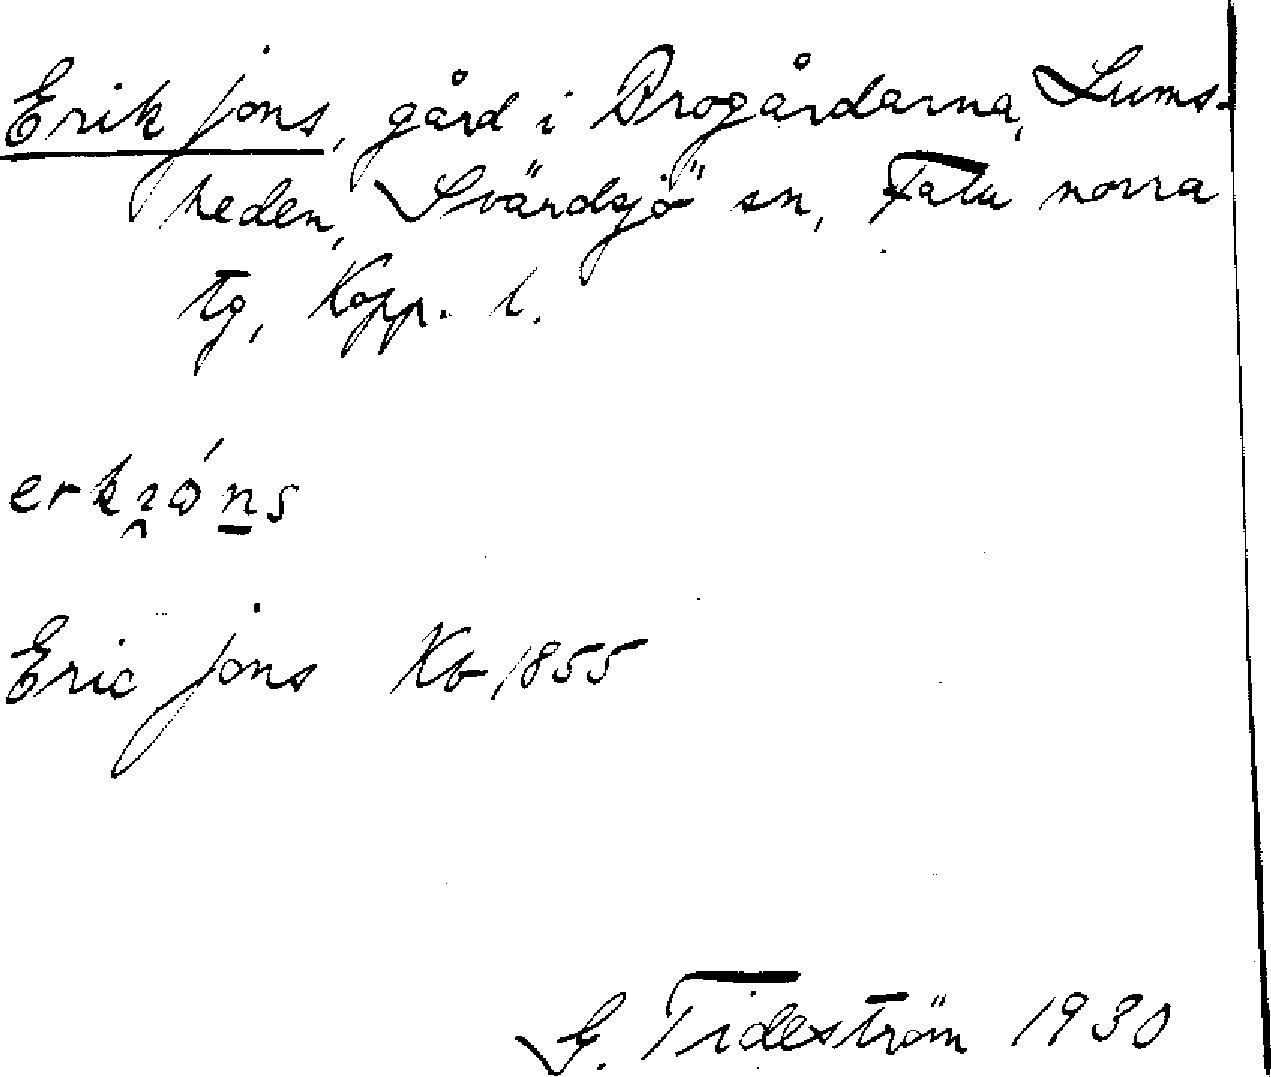 Erik jons, gård i Brogårdarna, Lums-
heden, Svärdsjö sn, Falu norra
tg, Kopp. l.
Eric jons Kb 1855
G. Tideström 1930